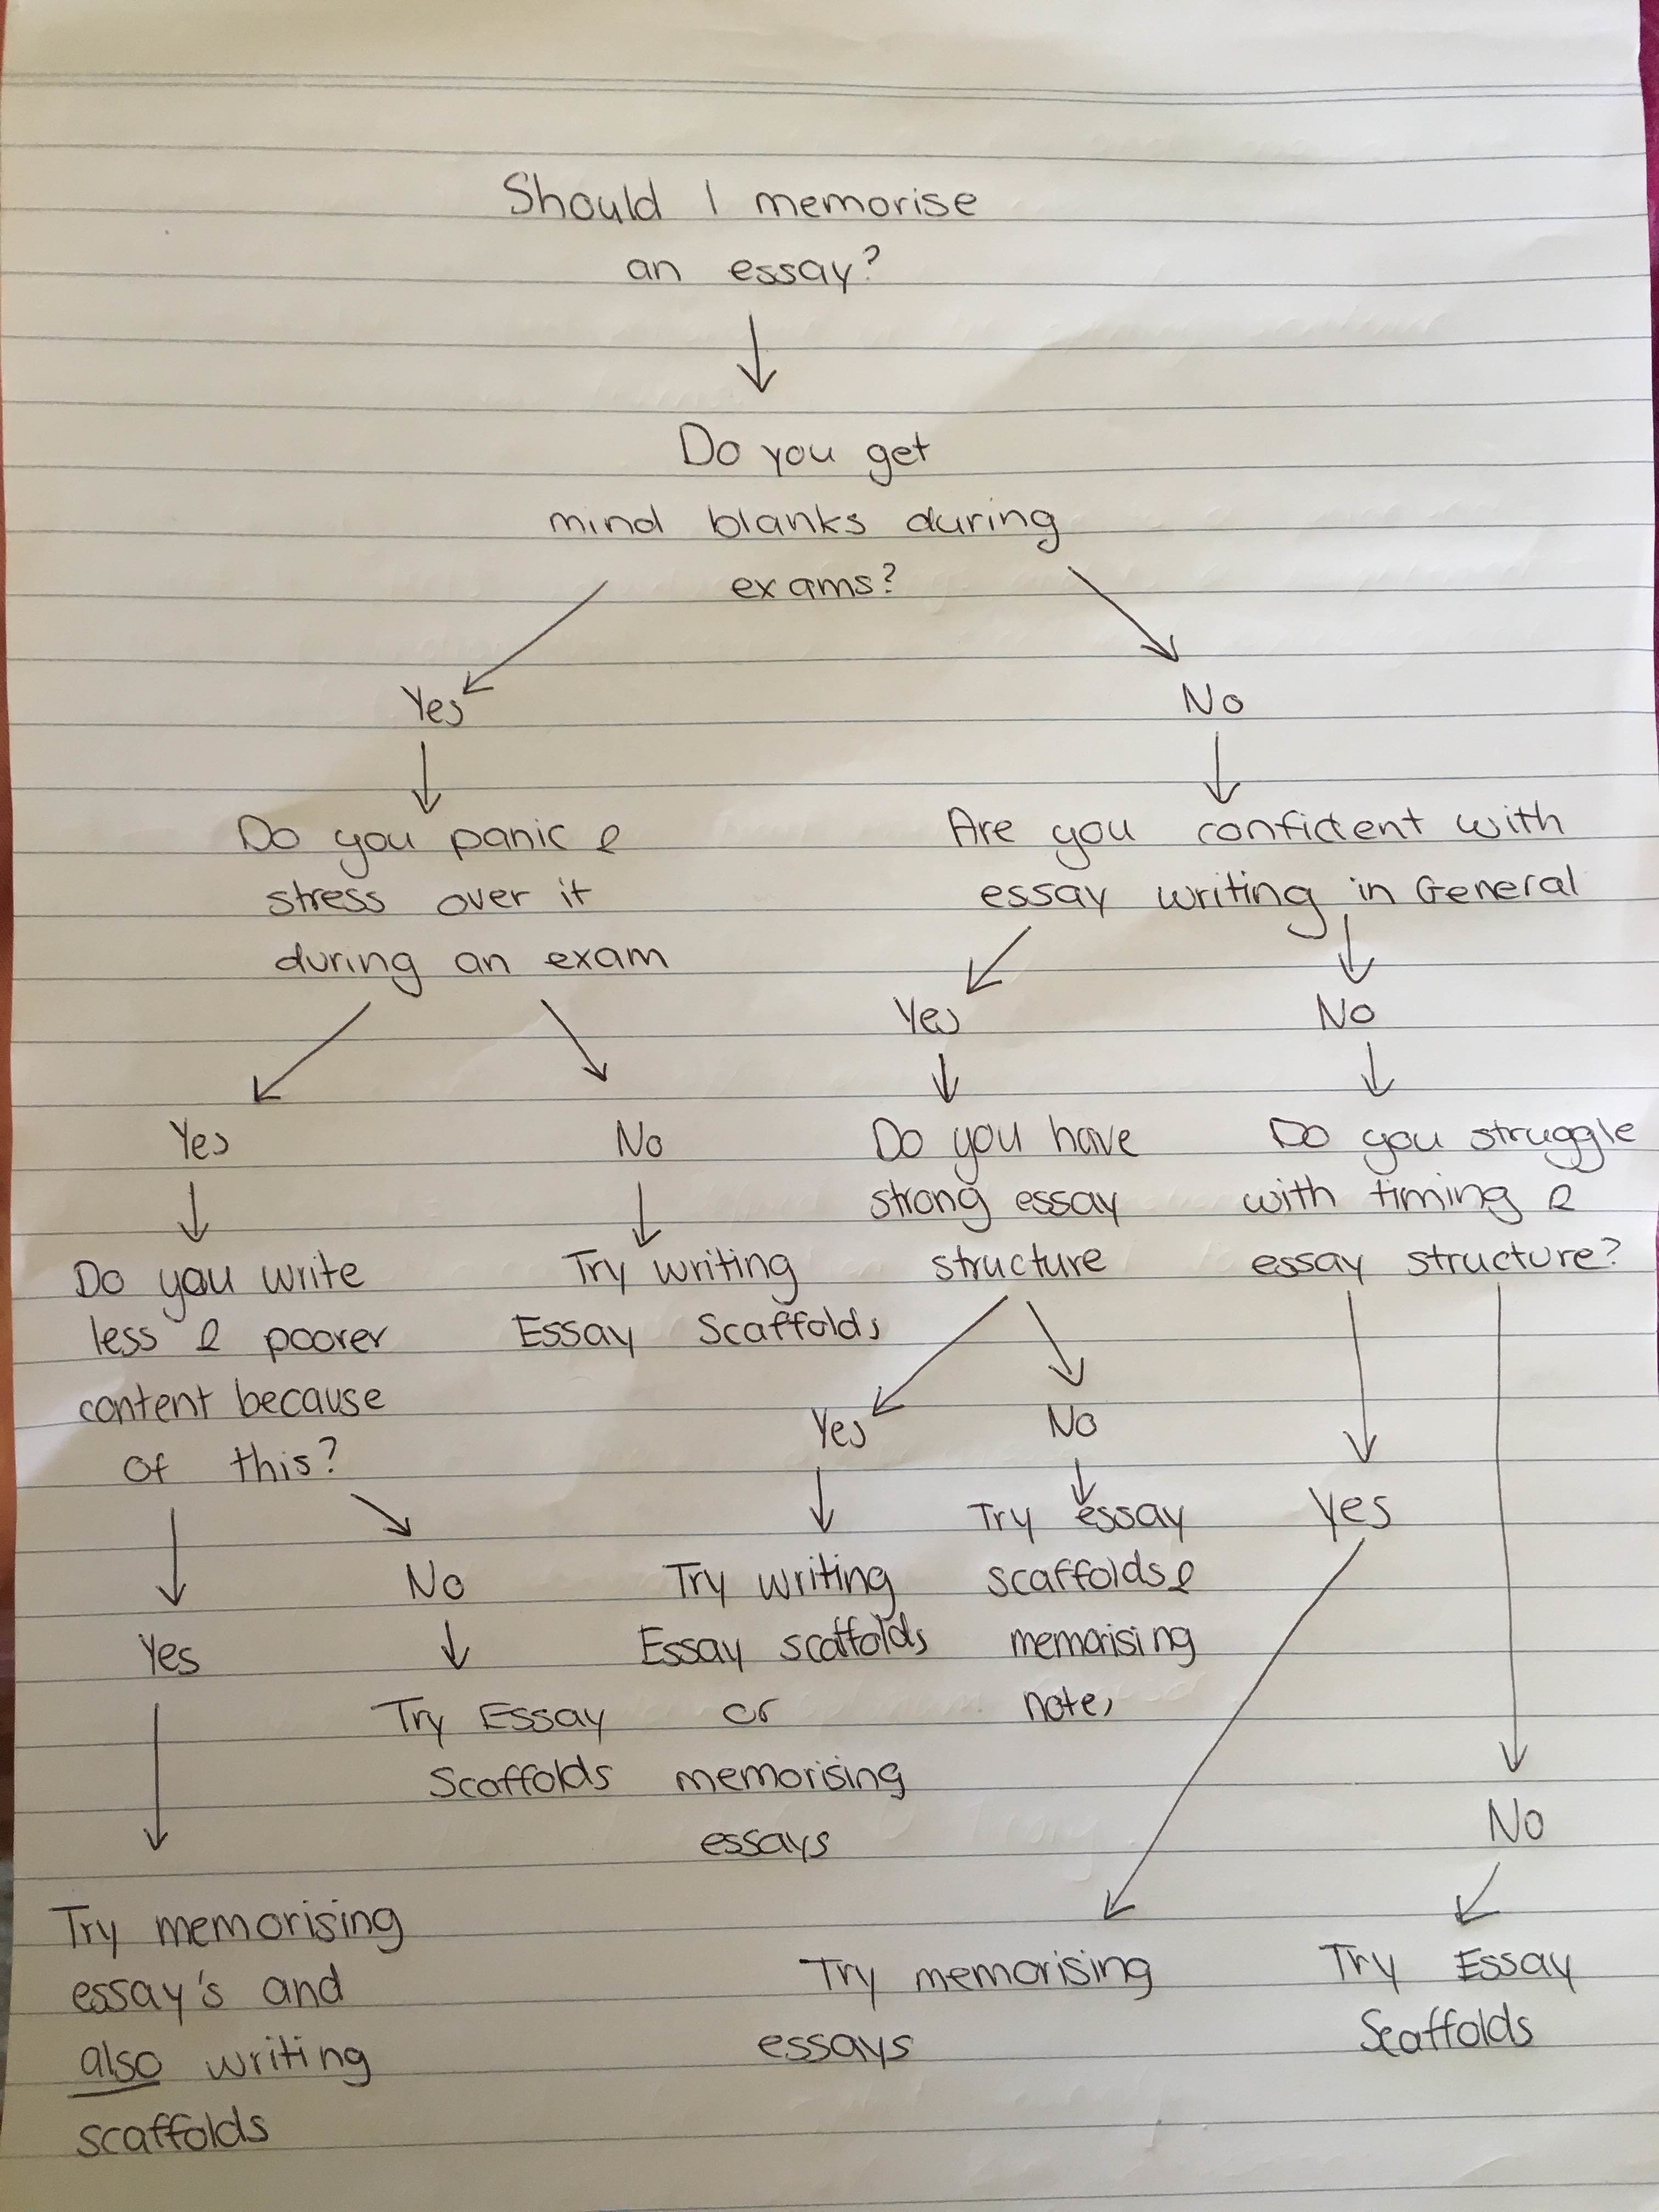 Should I memorise
an essay?
Do you get
mind blanks during
exams?
Yes
No
Do you panic &
stress over it
during an exam
Are you confident with
essay writing in General
Yes
No
Yes
No
Do you write
less & poorer
content because
of this?
Try writing
Essay Scaffolds
Do you have
strong essay
structure
Do you struggle
with timing &
essay structure?
Yes
No
Try memorising
essay's and
also writing
scaffolds
Try Essay
Scaffolds
Yes
No
Try writing
Essay scaffolds
or
memorising
essays
Try essay
scaffolds &
memorising
notes
Yes
No
Try memorising
essays
Try Essay
Scaffolds